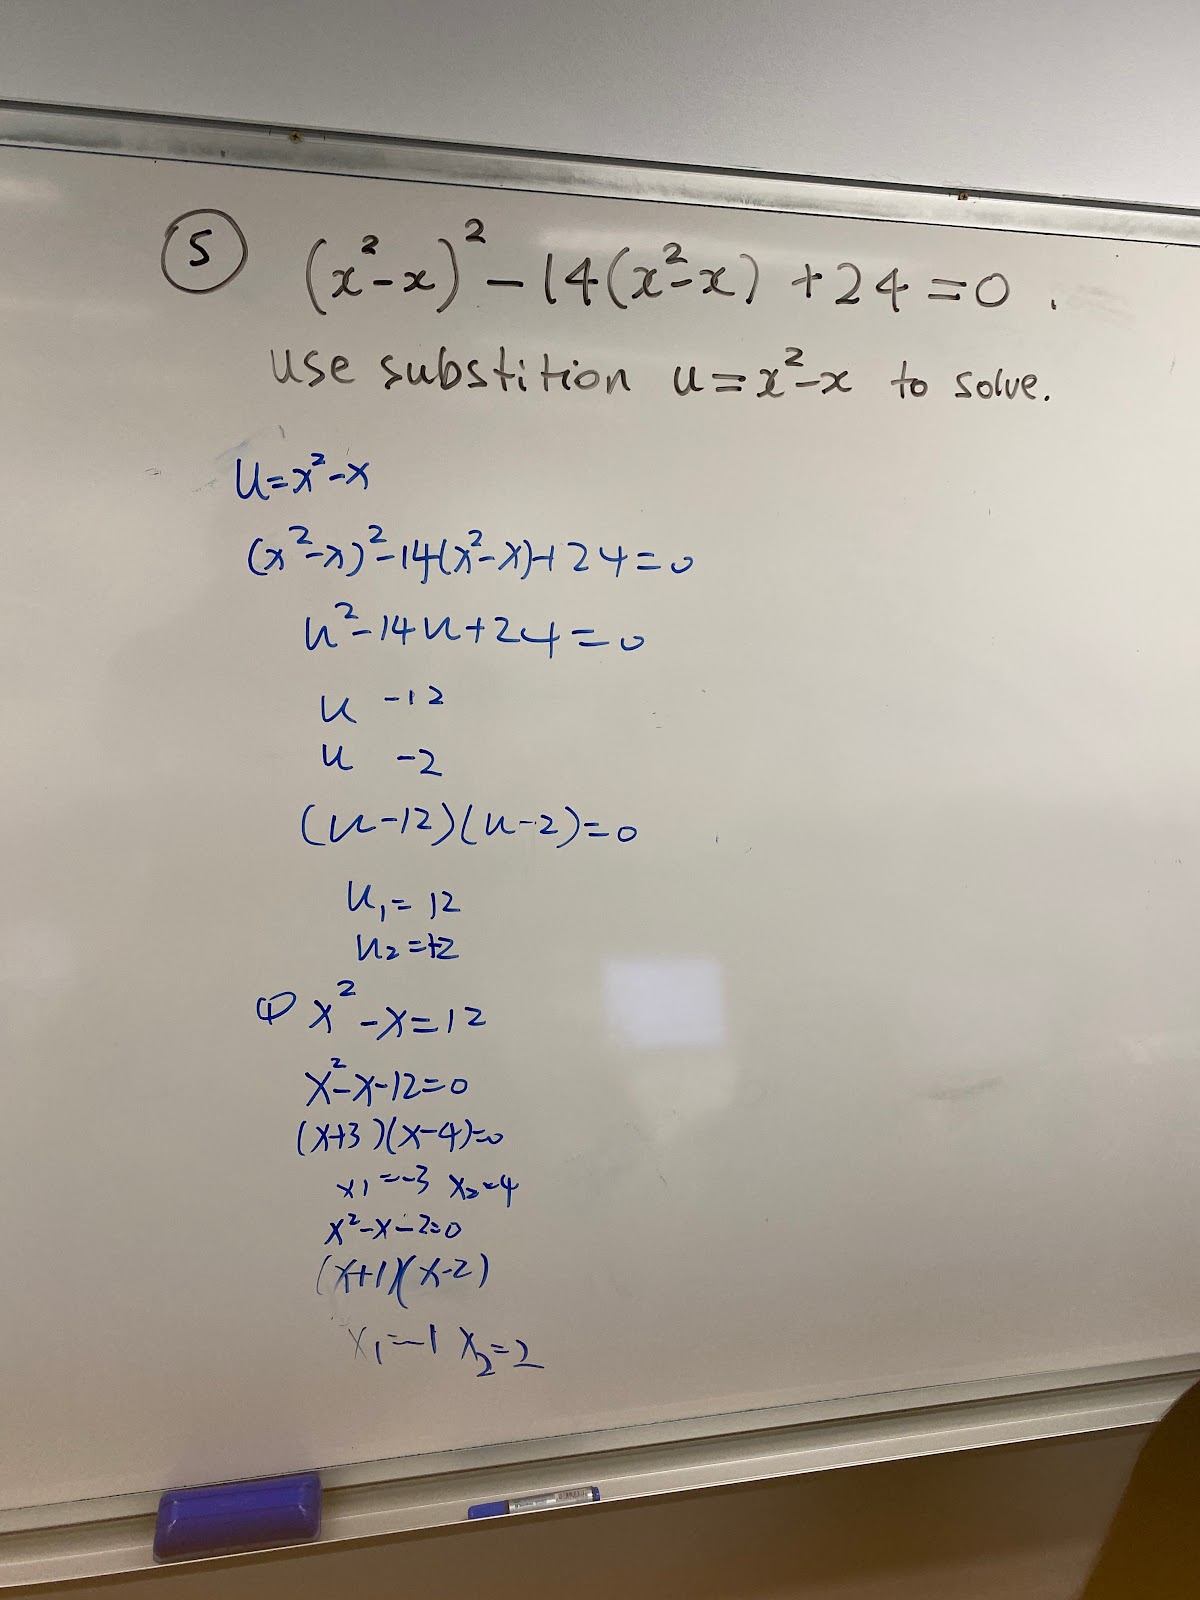 5 (x²-x)² - 14(x²-x) + 24 = 0 .
use substition u = x²-x to solve.
u = x²-x
(x²-x)²-14(x²-x)+24=0
u²-14u+24=0
u -12
u -2
(u-12)(u-2)=0
u₁= 12
u₂ =+2
① x²-x=12
x²-x-12=0
(x+3)(x-4)=0
x₁=-3 x₂=4
x²-x-2=0
(x+1)(x-2)
x₁=-1 x₂=2